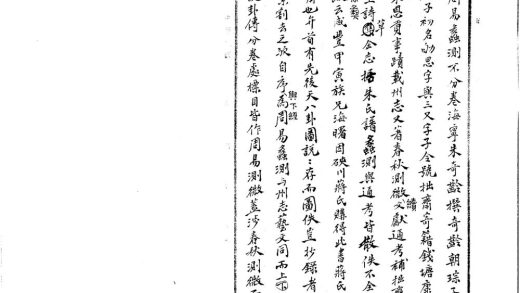 周易蠡測不分卷海寧朱奇齡撰奇齡朝琮子
子初名勛思字與三又字子全號拙齋寄籍錢塘康
朱恩貢事蹟載州志又著春秋測微續文獻通考補拙齋
上詩草全志拙朱氏譜蠡測與通考皆散佚不全
識云咸豐甲寅族兄海曙因硤川蔣氏購得此書蔣氏
周也午首有先後天八卦圖說說存而圖佚豈抄錄者
割去之歟自序爲周易蠡測與州志藝文同而上下
說卦傳分卷處標目皆作周易測微蓋涉春秋測微